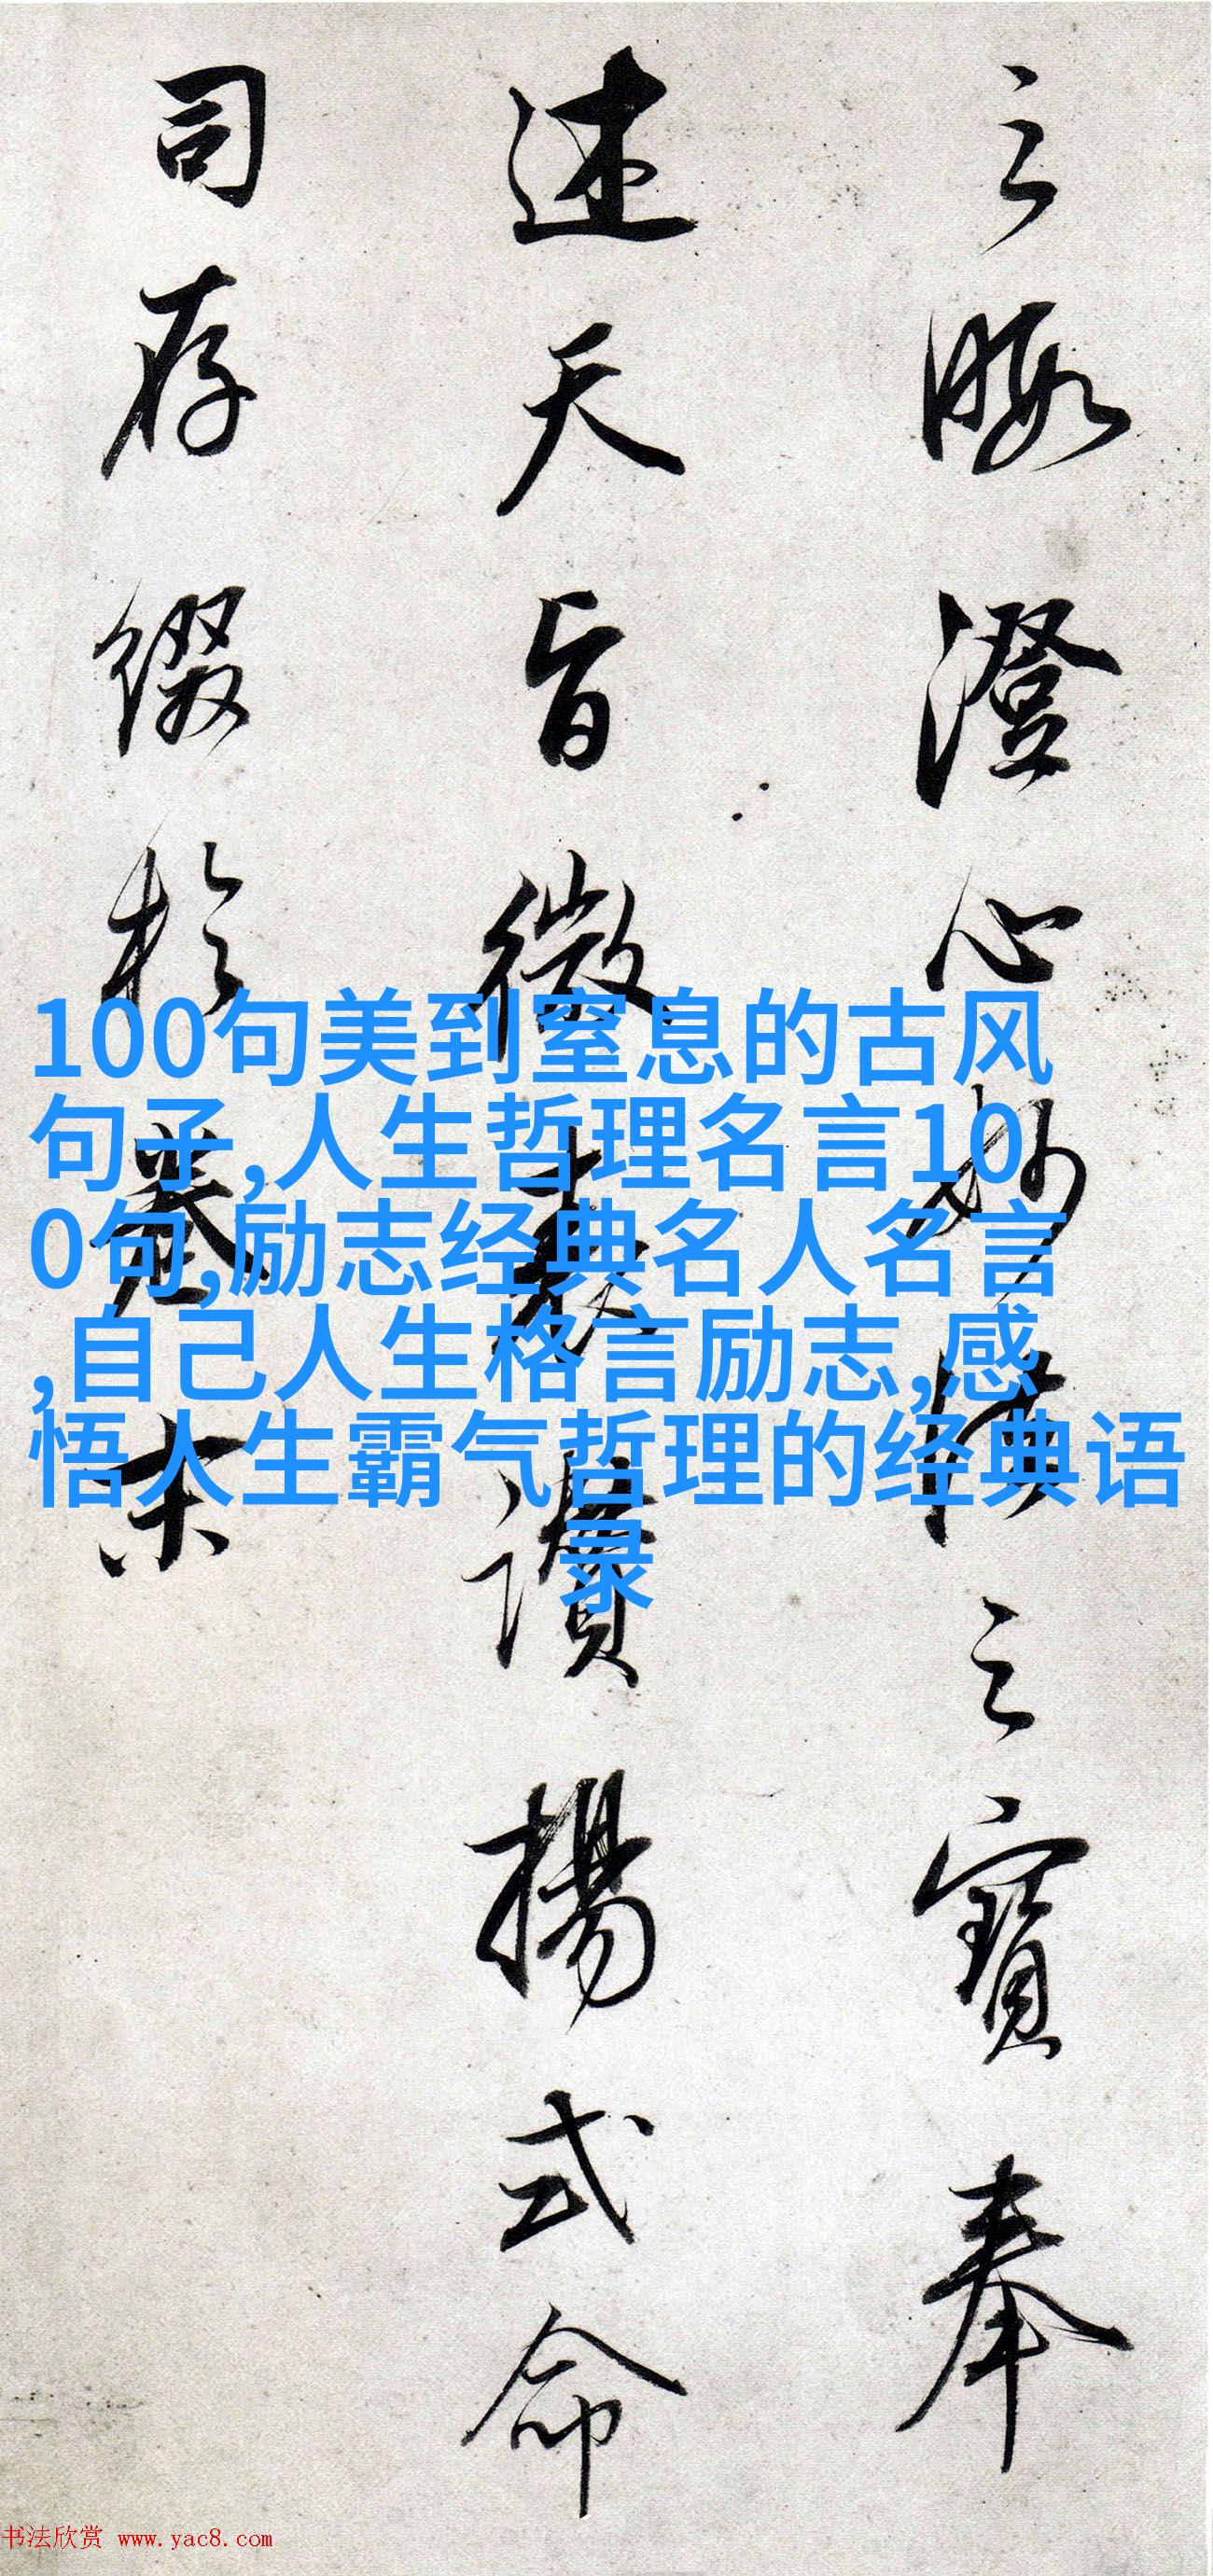 之暇澄心妙法之寶奉
述天旨微表讚揚式命
司存綴於卷末
100句美到窒息的古风
句子,人生哲理名言10
0句,励志经典名人名言
,自己人生格言励志,感
悟人生霸气哲理的经典语
录
书法欣赏 www.yac8.com